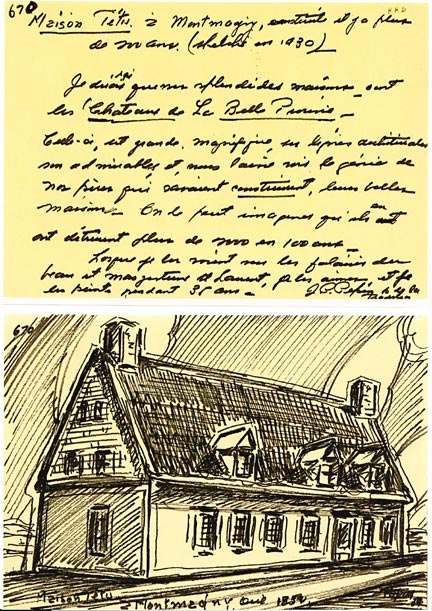 670 HRD
Maison Têtu. à Montmagny, construite il y a plus
de 200 ans. (sketché en 1930)
Je disais que nos splendides maisons sont
les "Châteaux de La Belle Province
Celle-ci, est grande, magnifique, ses lignes architecturales
son admirables et, nous laisse voir le génie de
nos pères qui savaient construire, leurs belles
maisons. On le peut imaginer qu'ils en
ont détruit plus de 2000 en 100 ans
Lorsque je les vient sur les falaises du
beau et majestueux St Laurent, je les aime, et je
les peints pendant 35 ans -
670
Maison Têtu
à Montmagny, Qué 1830